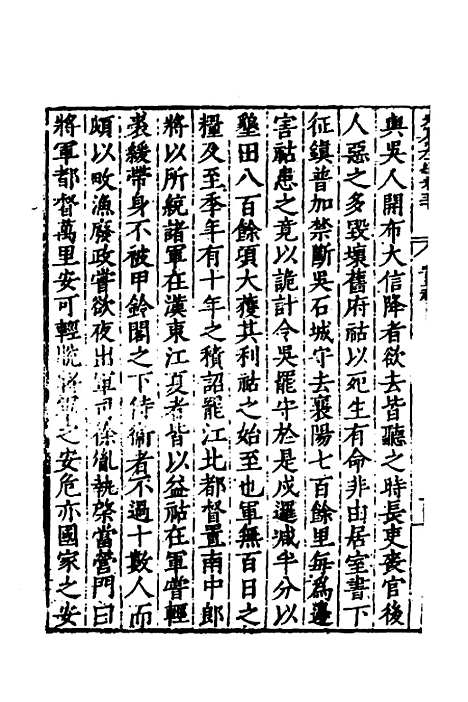 與吳人開布大信降者欲去皆聽之時長吏喪官後
人惡之多毀壞舊府祜以死生有命非由居室書下
征鎮普加禁斷吳石城守去襄陽七百餘里每為邊
害祜患之竟以詭計令吳罷守於是戍邏減半分以
墾田八百餘頃大獲其利祜之始至也軍無百日之
糧及至季年有十年之積詔罷江北都督置南中郎
將以所統諸軍在漢東江夏者皆以益祜在軍嘗輕
裘緩帶身不被甲鈴閣之下侍衛者不過十數人而
頗以畋漁廢政嘗欲夜出軍司徐胤執棨當營門曰
將軍都督萬里安可輕脫將軍之安危亦國家之安